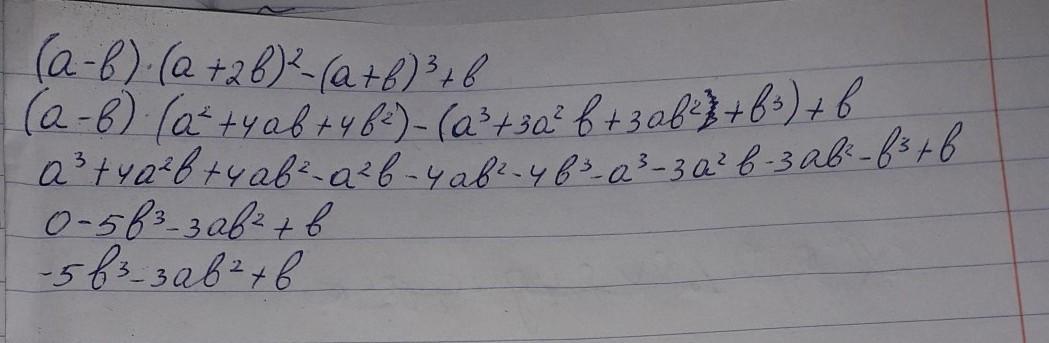 (a-b)·(a+2b)²-(a+b)³+b
(a-b)·(a²+4ab+4b²)-(a³+3a²b+3ab²+b³)+b
a³+4a²b+4ab²-a²b-4ab²-4b³-a³-3a²b-3ab²-b³+b
0-5b³-3ab²+b
-5b³-3ab²+b